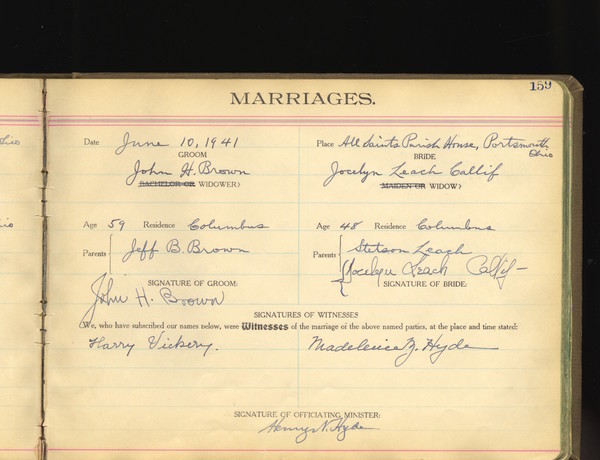 159
MARRIAGES.
Date June 10, 1941 Place All Saints Parish House, Portsmouth
Ohio
GROOM BRIDE
John H. Brown Jocelyn Leach Callif
BACHELOR OR WIDOWER? MAIDEN OR WIDOW?
Age 59 Residence Columbus Age 48 Residence Columbus
Parents Jeff B. Brown Parents Stetson Leach
Jocelyn Leach Callif
SIGNATURE OF GROOM: SIGNATURE OF BRIDE:
John H. Brown
SIGNATURES OF WITNESSES
We, who have subscribed our names below, were Witnesses of the marriage of the above named parties, at the place and time stated:
Harry Vickery. Hyde
SIGNATURE OF OFFICIATING MINISTER:
Henry N. Hyde